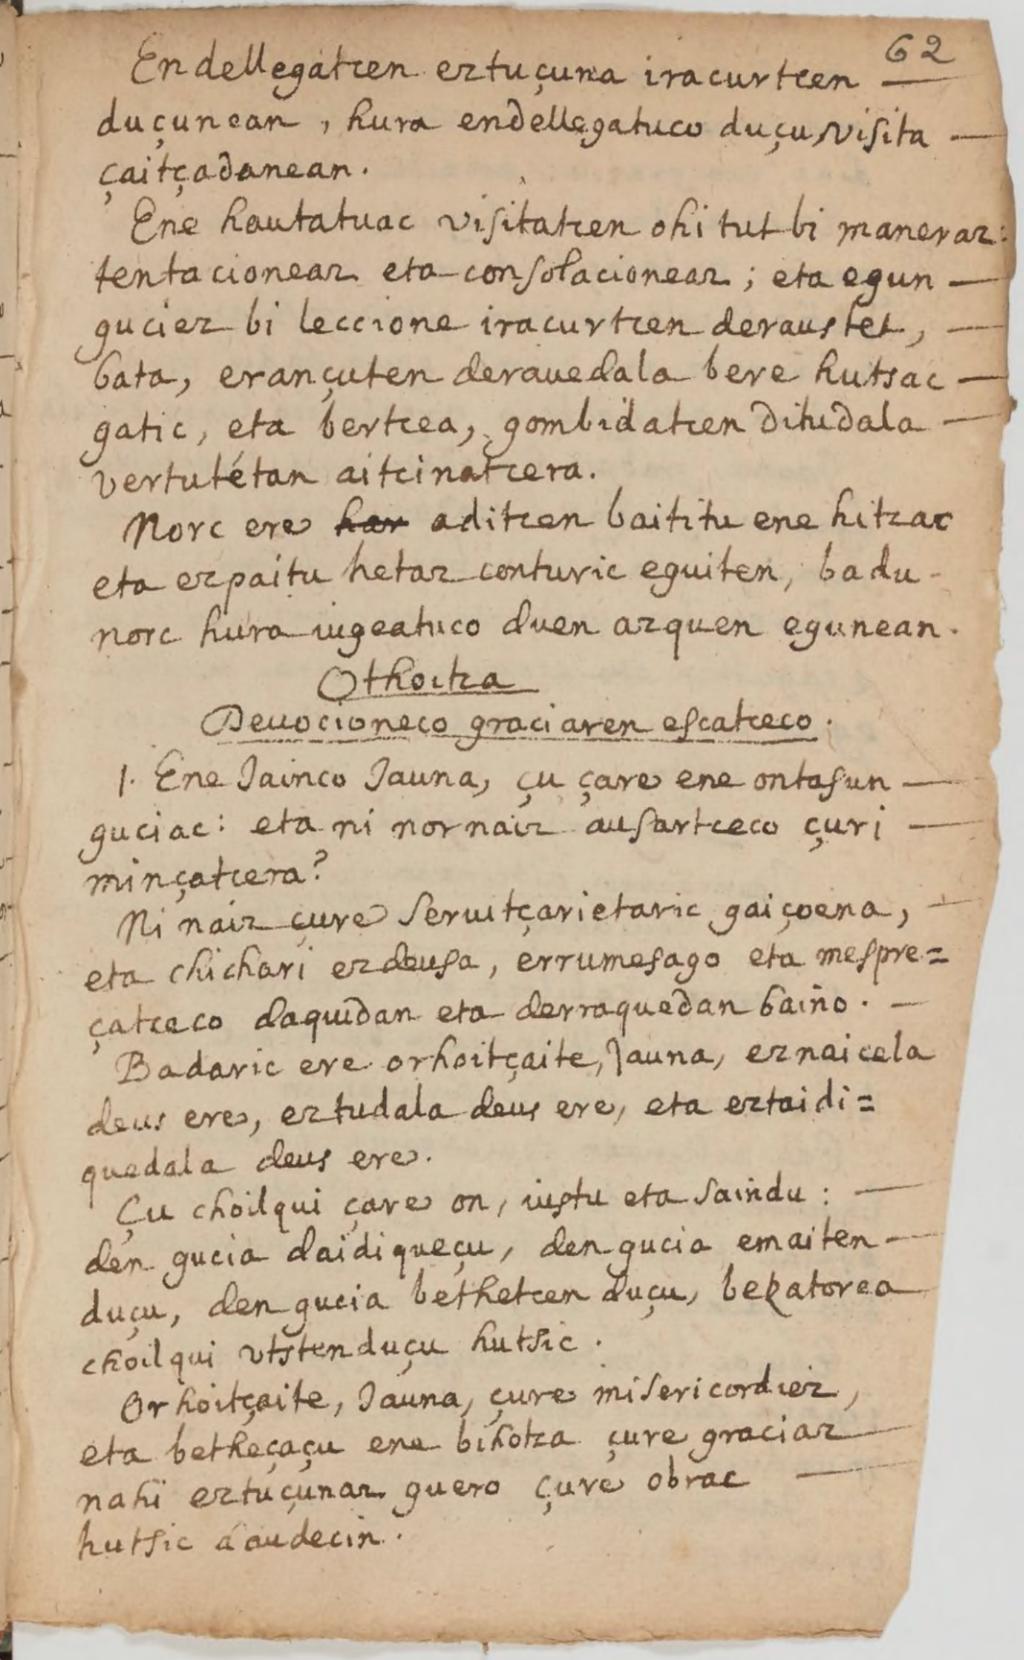 62
Endellegatcen eztuçuna iracurtcen
duçunean, hura endellegatuco duçu, visita
çaitçadanean.
Ene hautatuac visitatcen ohi tut bi maneraz:
tentacioneaz eta consolacioneaz; eta egun
guciez bi leccione iracurtcen deraustet,
bata, erançuten derauedala bere hutsac
gatic, eta bertcea, gombidatcen ditudala
vertutétan aitcinatcera.
Norc ere har aditcen baititu ene hitzac
eta ezpaitu hetaz conturic eguiten, badu
norc hura iugeatuco duen azquen egunean.
Othoitza
Deuocioneco graciaren escatceco.
1. Ene Jainco Jauna, çu çare ene ontasun
guciac: eta ni nor naiz ausartceco çuri
minçatcera?
Ni naiz çure seruitçarietaric gaiçoena,
eta chichari ezdeusa, errumesago eta mespre=
çatceco daquidan eta derraquedan baiño.
Badaric ere orhoitçaite, Jauna, eznaicela
deus ere, eztudala deus ere, eta eztaidi=
quedala deus ere.
Çu choilqui çare on, iustu eta saindu:
den gucia daidiqueçu, den gucia emaiten
duçu, den gucia bethetcen duçu, bekatorea
choilqui vtsten duçu hutsic.
Orhoitçaite, Jauna, çure misericordiez,
eta betheçaçu ene bihotza çure graciaz
nahi eztuçunaz guero çure obrac
hutsic daudecin.